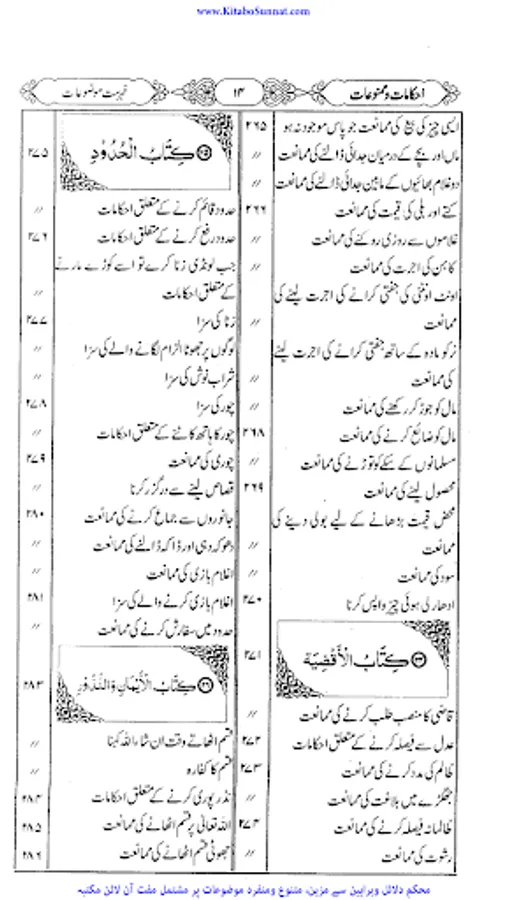 www.KitaboSunnat.com
احکامات و ممنوعات
۱۴
فہرست موضوعات
ایسی چیز کی بیع کی ممانعت جو پاس موجود نہ ہو ۲۶۵
ماں اور بچے کے درمیان جدائی ڈالنے کی ممانعت //
دو غلام بھائیوں کے مابین جدائی ڈالنے کی ممانعت //
کتے اور بلی کی قیمت کی ممانعت ۲۶۶
غلاموں سے روزی روکنے کی ممانعت //
کاہن کی اجرت کی ممانعت //
اونٹ اونٹنی کی جفتی کرانے کی اجرت لینے کی
ممانعت //
نر کو مادہ کے ساتھ جفتی کرانے کی اجرت لینے
کی ممانعت //
مال کو جوڑ کر رکھنے کی ممانعت //
مال کو ضائع کرنے کی ممانعت ۲۶۸
مسلمانوں کے سکے کو توڑنے کی ممانعت //
محصول لینے کی ممانعت ۲۶۹
محض قیمت بڑھانے کے لیے بولی دینے کی
ممانعت //
سود کی ممانعت //
ادھار لی ہوئی چیز واپس کرنا ۲۷۰
كِتَابُ الْأَقْضِيَة ۲۷۱
قاضی کا منصب طلب کرنے کی ممانعت //
عدل سے فیصلہ کرنے کے متعلق احکامات ۲۷۲
ظالم کی مدد کرنے کی ممانعت ۲۷۳
جھگڑے میں بلاغت کی ممانعت //
ظالمانہ فیصلہ کرنے کی ممانعت ۲۷۴
رشوت کی ممانعت //
كِتَابُ الْحُدُوْدِ ۲۷۵
حدود قائم کرنے کے متعلق احکامات //
حدود رفع کرنے کے متعلق احکامات ۲۷۶
جب لونڈی زنا کرے تو اسے کوڑے مارنے
کے متعلق احکامات //
زنا کی سزا ۲۷۷
لوگوں پر جھوٹا الزام لگانے والے کی سزا //
شراب نوش کی سزا //
چور کی سزا ۲۷۸
چور کا ہاتھ کاٹنے کے متعلق احکامات //
چوری کی ممانعت ۲۷۹
قصاص لینے سے درگزر کرنا //
جانوروں سے جماع کرنے کی ممانعت ۲۸۰
دھوکہ دہی اور ڈاکہ ڈالنے کی ممانعت //
اغلام بازی کی ممانعت //
اغلام بازی کرنے والے کی سزا ۲۸۱
حدود میں سفارش کرنے کی ممانعت //
كِتَابُ الْأَيْمَانِ وَالنُّذُوْرِ ۲۸۳
قسم اٹھاتے وقت ان شاء اللہ کہنا //
قسم کا کفارہ //
نذر پوری کرنے کے متعلق احکامات ۲۸۴
اللہ تعالیٰ پر قسم اٹھانے کی ممانعت ۲۸۵
جھوٹی قسم اٹھانے کی ممانعت ۲۸۶
محکم دلائل وبراہین سے مزین، متنوع ومنفرد موضوعات پر مشتمل مفت آن لائن مکتبہ